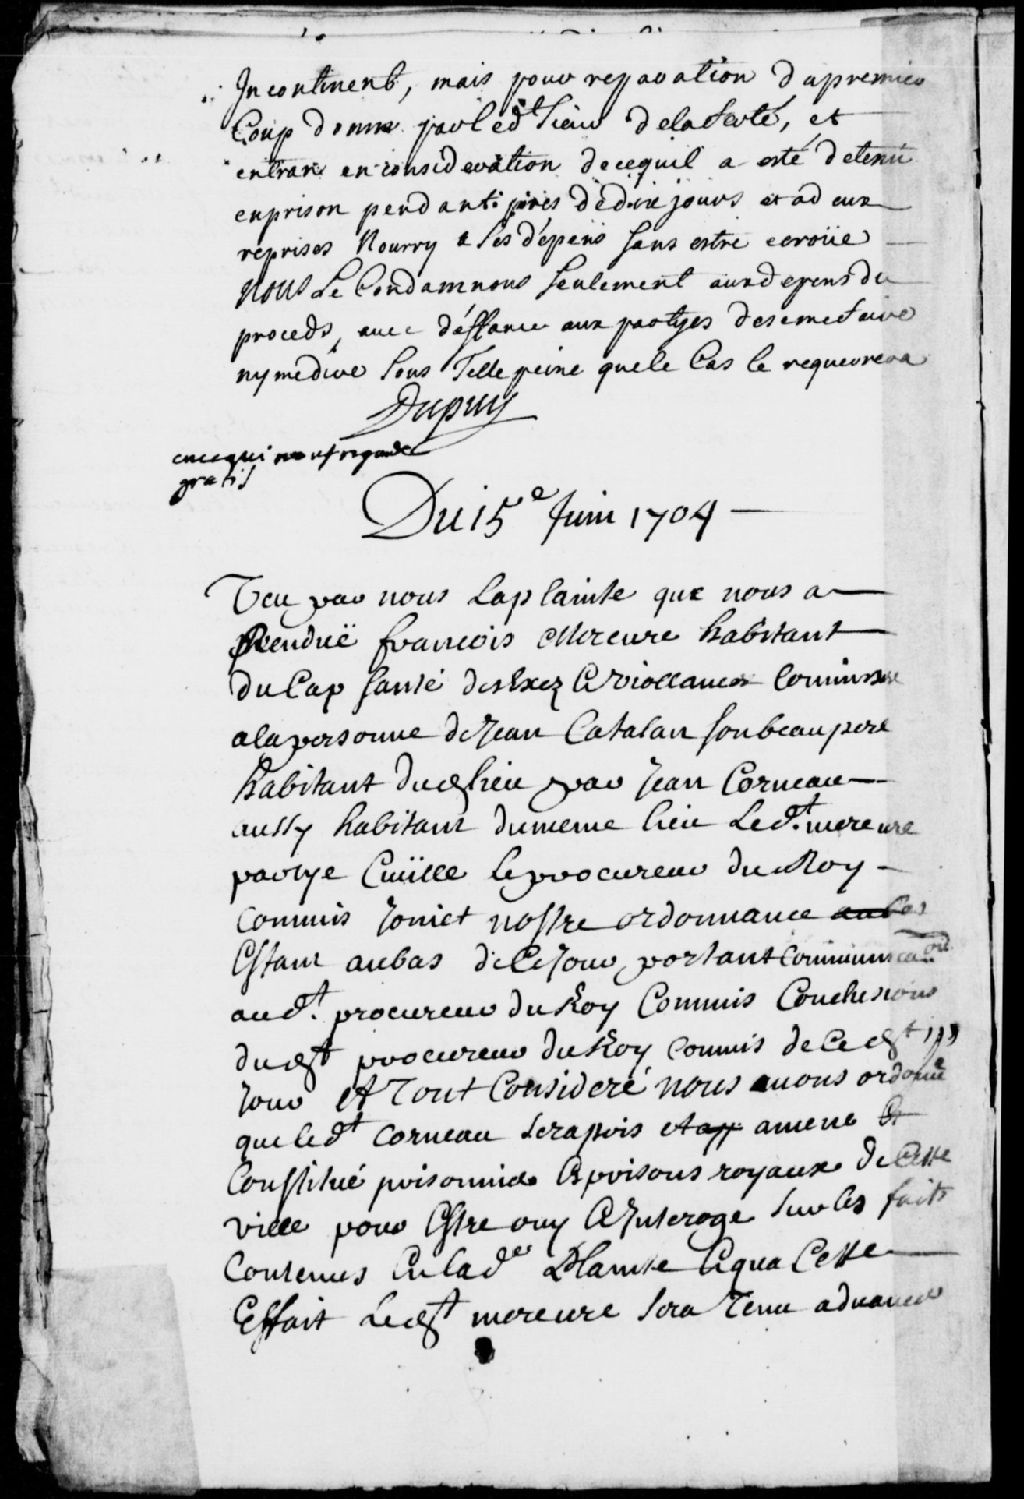 Incontinent, mais pour reparation du premier
Coup donné par led.t Sieur de la ferté, et
entrant en consideration de ce quil a esté detenu
en prison pendant pres de dix jours et a deux
reprises Nourry a ses dépens sans estre ecroüe
nous Le Condamnons Seulement aux depens du
proceds, avec déffance aux partyes de se meffaire
ny medire Sous Telle peine que le Cas le requerera
Dupuy
en ce qui nous regarde
gratis
Du 15e Juin 1704
Veu par nous La plainte que nous a
Renduë francois Mercure habitant
du Cap Santé des Exez & viollances Commises
a la personne de Jean Catalan son beau pere
habitant dud lieu par Jean Corneau
aussy habitant du meme lieu Led.t mercure
partye Ciuille le procureur du Roy
Commis Joinct nostre ordonnance au bas
Estant au bas de Ce Jour portant Communica.on
aud.t procureur du Roy Commis Conclusions
dud.t procureur du Roy Commis de Ced.t
Jour Et Tout Consideré nous auons ordonné
que led.t Corneau sera pris et app amené Et
Constitué prisonnier Es prisons royaux de Cette
ville pour Estre ouy & Interogé sur les faits
Contenus En lad.e Plainte Et qua Cette
Effait Led.t mercure sera Tenu aduancer